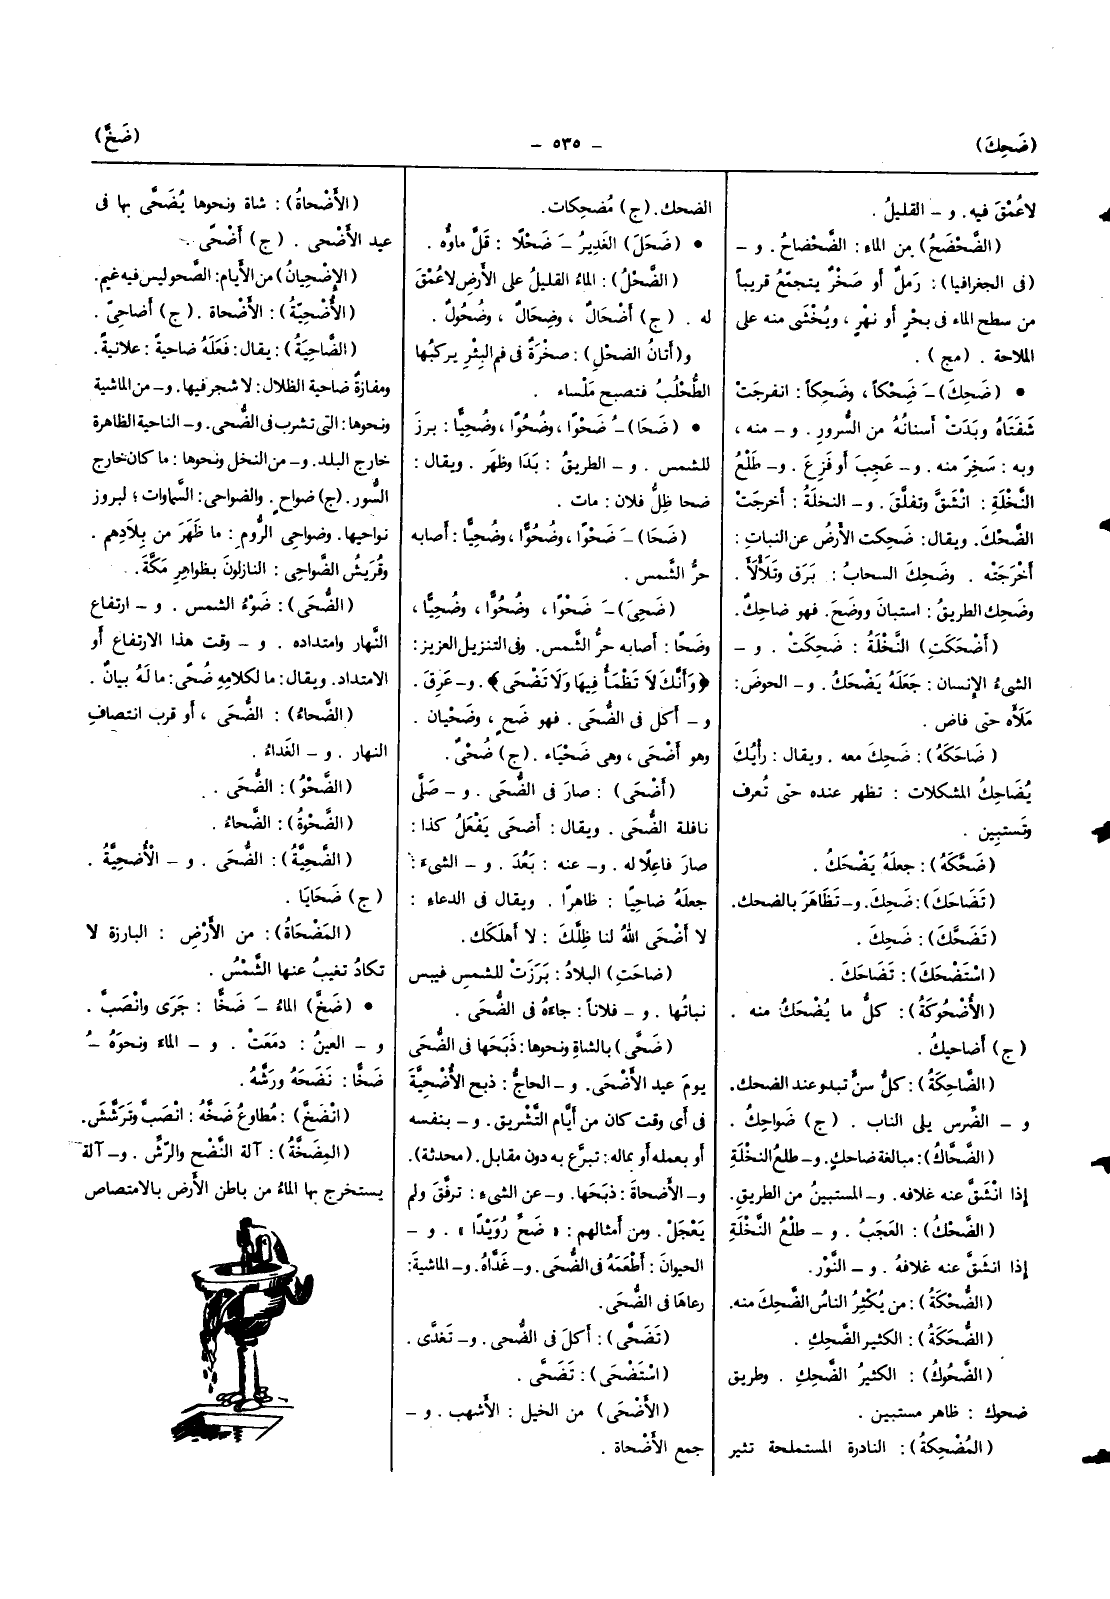 (ضَحِكَ)
– ٥٣٥ –
(ضَخَّ)
لاعُمْقَ فيه. و – القليلُ .
(الضَّحْضَحُ) من الماء : الضَّحْضاحُ . و –
(فى الجغرافيا) : رَملٌ أو صَخْرٌ يتجمّعُ قريباً
من سطح الماء فى بحْرٍ أو نهْرٍ ، ويُخْشَى منه على
الملاحة . (مج) .
• (ضَحِكَ) –َ ضَحْكاً ، وضَحِكاً : انفرجَتْ
شفَتَاهُ وبَدَتْ أسنانُهُ من السُّرورِ . و – منه ،
وبه : سَخِرَ منه . و – عَجِبَ أو فَزِعَ . و – طَلْعُ
النَّخْلَةِ : انْشَقَّ وتفلَّقَ . و – النخلةُ : أخرجَتْ
الضَّحْكَ. ويقال: ضَحِكت الأرضُ عن النباتِ :
أخْرَجَتْه . وضَحِكَ السحابُ : بَرَق وتَلَأْلَأَ .
وضَحِك الطريقُ : استبانَ ووضَحَ. فهو ضاحِكٌ.
(أضْحَكَتِ) النَّخْلَةُ : ضَحِكَتْ . و –
الشىءُ الإنسان : جَعَلَهُ يَضْحَكُ . و – الحوضَ:
مَلَأَه حتى فاض .
(ضَاحَكَهُ) : ضَحِكَ معه . ويقال : رأْيُكَ
يُضَاحِكُ المشكلات : تظهر عنده حتى تُعرف
وتَستبِين .
(ضَحَّكَهُ) : جعلَهُ يَضْحَكُ .
(تَضَاحَكَ) : ضَحِكَ. و – تَظَاهَرَ بالضحك.
(تَضَحَّكَ) : ضَحِكَ .
(اسْتَضْحَكَ) : تَضَاحَكَ .
(الأُضْحُوكَةُ) : كلُّ ما يُضْحَكُ منه .
(ج) أضاحيكُ .
(الضَّاحِكَةُ) : كلُّ سنٍّ تبدو عند الضحك.
و – الضِّرس يلى الناب . (ج) ضَواحِكُ .
(الضَّحَّاكُ) : مبالغة ضاحك. و – طلعُ النخْلَةِ
إذا انْشَقَّ عنه غلافه. و – المستبينُ من الطريقِ.
(الضَّحْكُ) : العَجَبُ . و – طلْعُ النَّخْلَةِ
إذا انشقَّ عنه غلافهُ . و – النَّوْر.
(الضُّحْكَةُ) : من يُكْثِرُ الناسُ الضَّحِكَ منه.
(الضُّحَكَةُ) : الكثير الضَّحِكِ .
(الضَّحُوكُ) : الكثيرُ الضَّحِكِ . وطريق
ضحوك : ظاهر مستبين .
(المُضْحِكةُ) : النادرة المستملحة تثير
الضحك. (ج) مُضحِكات.
• (ضَحَلَ) الغَدِيرُ –َ ضَحْلًا : قَلَّ ماوُّه .
(الضَّحْلُ) : الماءُ القليلُ على الأرضِ لاعُمْقَ
له . (ج) أضْحَالٌ ، وضِحَالٌ ، وضُحُولٌ .
و(أتانُ الضحْلِ) : صخْرَةٌ فى فم البِئْرِ يركبُها
الطُّحْلُبُ فتصبح مَلْساء .
• (ضَحَا) –ُ ضَحْوًا ، وضُحُوًّا ، وضُحِيًّا : برزَ
للشمس . و – الطريقُ : بَدَا وظهَر . ويقال :
ضحا ظِلُّ فلان : مات .
(ضَحَا) –َ ضَحْوًا ، وضُحُوًّا ، وضُحِيًّا : أصابه
حرُّ الشَّمس .
(ضَحِىَ) –َ ضَحْوًا ، وضُحُوًّا ، وضُحِيًّا ،
وضَحًا : أصابه حرُّ الشَّمس. وفى التنزيل العزيز :
﴿وَأَنَّكَ لَا تَظْمَأُ فِيهَا وَلَا تَضْحَى﴾ . و – عَرِقَ .
و – أكل فى الضُّحَى . فهو ضَحٍ ، وضَحْيان .
وهو أضْحَى ، وهى ضَحْيَاء . (ج) ضُحْىٌ .
(أضْحَى) : صارَ فى الضُّحَى . و – صَلَّى
نافلة الضُّحَى . ويقال : أضحَى يَفْعَلُ كذا :
صارَ فاعِلًا له . و – عنه : بَعُدَ . و – الشىءَ :
جعلَهُ ضاحِيًا : ظاهرًا . ويقال فى الدعاء :
لا أضْحَى اللهُ لنا ظِلَّكَ : لا أهلَكَك.
(ضاحَتِ) البلادُ : بَرَزَتْ للشمسِ فيبس
نباتُها . و – فلاناً : جاءهُ فى الضُّحَى .
(ضَحَّى) بالشاةِ ونحوها : ذَبَحَها فى الضُّحَى
يومَ عيد الأضْحَى. و – الحاجُّ : ذبح الأُضْحِيَّةَ
فى أى وقت كان من أيَّام التَّشْريق. و – بنفسه
أو بعمله أو بماله : تبرَّع به دون مقابل. (محدثة).
و – الأضحاةَ : ذبَحَها. و – عن الشىءِ : ترفَّقَ ولم
يَعْجَلْ. ومن أمثالهم : « ضَحِّ رُوَيْدًا » . و –
الحيوانَ : أطْعَمَهُ فى الضُّحَى. و – غَدَّاهُ. و – الماشيةَ :
رعاهَا فى الضُّحَى.
(تَضَحَّى) : أكلَ فى الضُّحى . و – تَغدَّى .
(اسْتَضْحَى) : تَضَحَّى .
(الأضْحَى) من الخيل : الأشهب . و –
جمع الأضْحاة .
(الأَضْحاةُ) : شاة ونحوها يُضَحَّى بها فى
عيد الأضْحى . (ج) أضْحًى .
(الإضْحِيانُ) من الأيام: الضَّحو ليس فيه غيم.
(الأُضْحِيّةُ) : الأضْحاة . (ج) أضاحِىّ .
(الضَّاحِيَةُ) : يقال : فَعَلَهُ ضاحيةً : علانيةً.
ومفازةٌ ضاحية الظلال : لا شجر فيها. و – من الماشية
ونحوها : التى تشرب فى الضُّحى. و – الناحية الظاهرة
خارج البلد. و – من النخل ونحوها : ما كان خارج
السُّور. (ج) ضواحٍ. والضواحى: السَّماوات ؛ لبروز
نواحيها. وضواحِى الرُّوم : ما ظَهَرَ من بِلَادِهم .
وقُرَيشُ الضَّواحِى : النازلون بظواهرِ مَكَّةَ.
(الضُّحَى) : ضَوْءُ الشمس . و – ارتفاع
النَّهار وامتداده . و – وقت هذا الارتفاع أو
الامتداد. ويقال: ما لكلامِهِ ضُحًى: ما لَهُ بيانٌ .
(الضَّحاءُ) : الضُّحَى ، أو قرب انتصافِ
النهار . و – الغَداءُ .
(الضَّحْوُ) : الضُّحَى .
(الضَّحْوةُ) : الضَّحاءُ .
(الضَّحِيَّةُ) : الضُّحَى . و – الأُضحِيَّةُ .
(ج) ضَحَايَا .
(المَضْحَاةُ) : من الأَرْضِ : البارزة لا
تكادُ تغيبُ عنها الشَّمْسُ .
• (ضَخَّ) الماءُ –َ ضَخًّا : جَرَى وانْصَبَّ .
و – العينُ : دمَعَتْ . و – الماءَ ونحوَهُ –ُ
ضَخًّا : نَضَحَهُ ورَشَّهُ .
(انْضَخَّ) : مُطاوعُ ضَخَّهُ : انْصَبَّ وتَرَشَّشَ.
(المِضَخَّةُ) : آلة النَّضْح والرَّشِّ . و – آلة
يستخرج بها الماءُ من باطن الأرض بالامتصاص